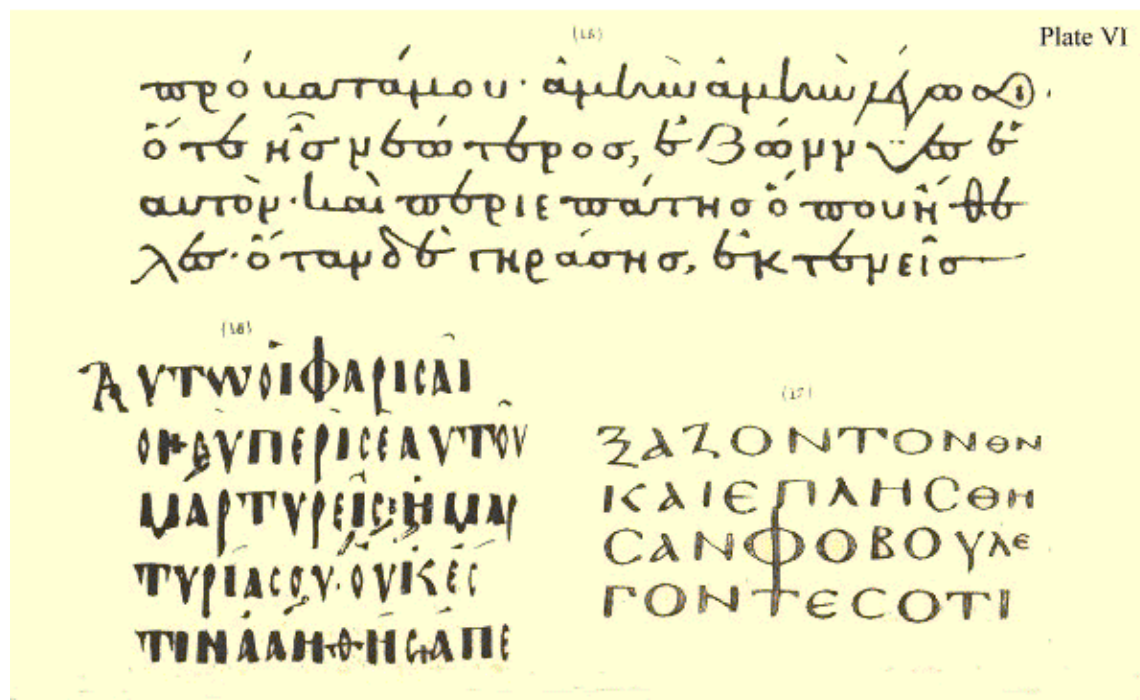 Plate VI
πρόβατάμου· ἀμὴν ἀμὴν λέγω σοι.
ὅτε ἦσ νεώτεροσ, ἐζώννυεσ ἑ
αυτὸν· καὶ περιεπάτησ ὅπου ἤθε
λεσ· ὅταν δὲ γηράσησ, ἐκτενεῖσ
(16)
ΑΥΤΩ ΟἱΦΑΡΙCΑῖ
ΟΙ CῪ ΠΕΡῚ CΕΑΥΤΟῦ
ΜΑΡΤΥΡΕῖC· Ἡ ΜΑΡ
ΤΥΡΊΑ CΟΥ· ΟΥ̓Κ ἜC
ΤΙΝ ἈΛΗΘΉC· ἈΠΕ
(17)
ΞΑΖΟΝΤΟΝΘΝ
ΚΑΙΕΠΛΗCΘΗ
CΑΝΦΟΒΟΥΛΕ
ΓΟΝΤΕCΟΤΙ